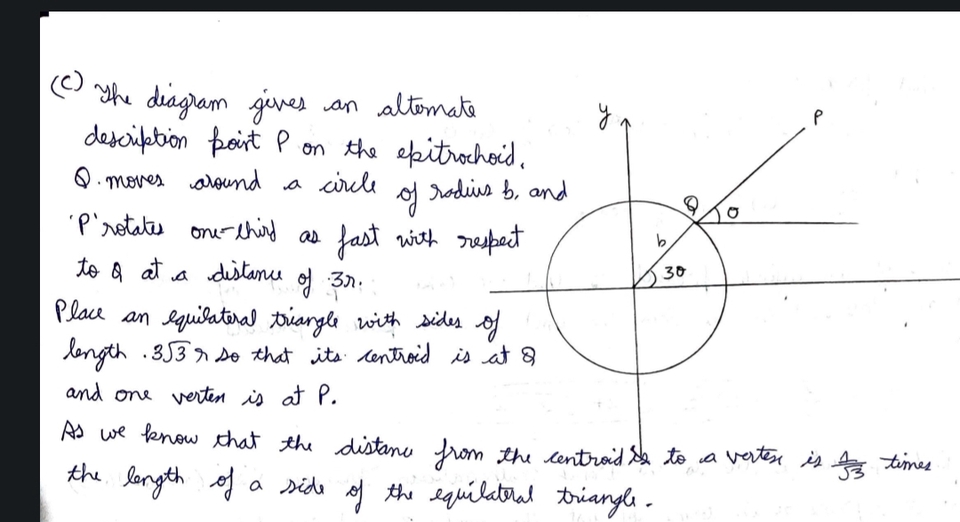 (C) The diagram gives an alternate
description point P on the epitrochoid.
Q. moves around a circle of radius b, and
'P' rotates one-third as fast with respect
to Q at a distance of 3r.
Place an equilateral triangle with sides of
length 3√3 r so that its centroid is at Q
and one vertex is at P.
As we know that the distance from the centroid to a vertex is 1/√3 times
the length of a side of the equilateral triangle.
y
P
Q
θ
b
3θ